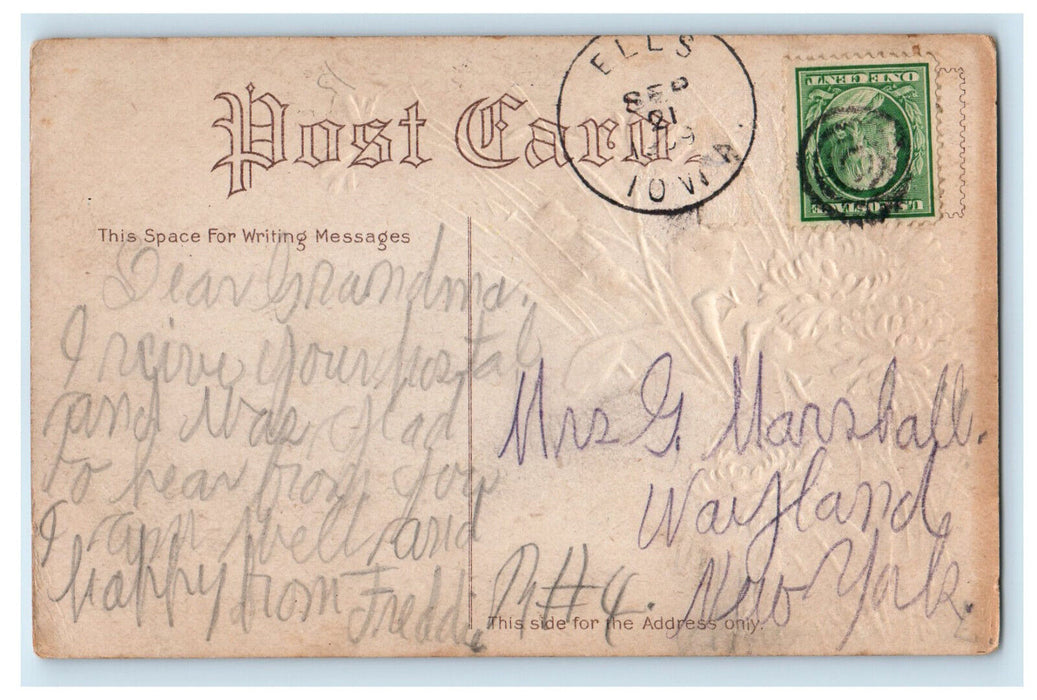 Post Card.
ELLS
SEP
21
IOWA.
ONE CENT
U.S. POSTAGE
This Space For Writing Messages
Dear Grandma.
I reicive your postal
and was glad
to hear from you
I am well and
happy from Freddi
Mrs G. Marshall.
Wayland
New York.
R#4.
This side for the Address only.